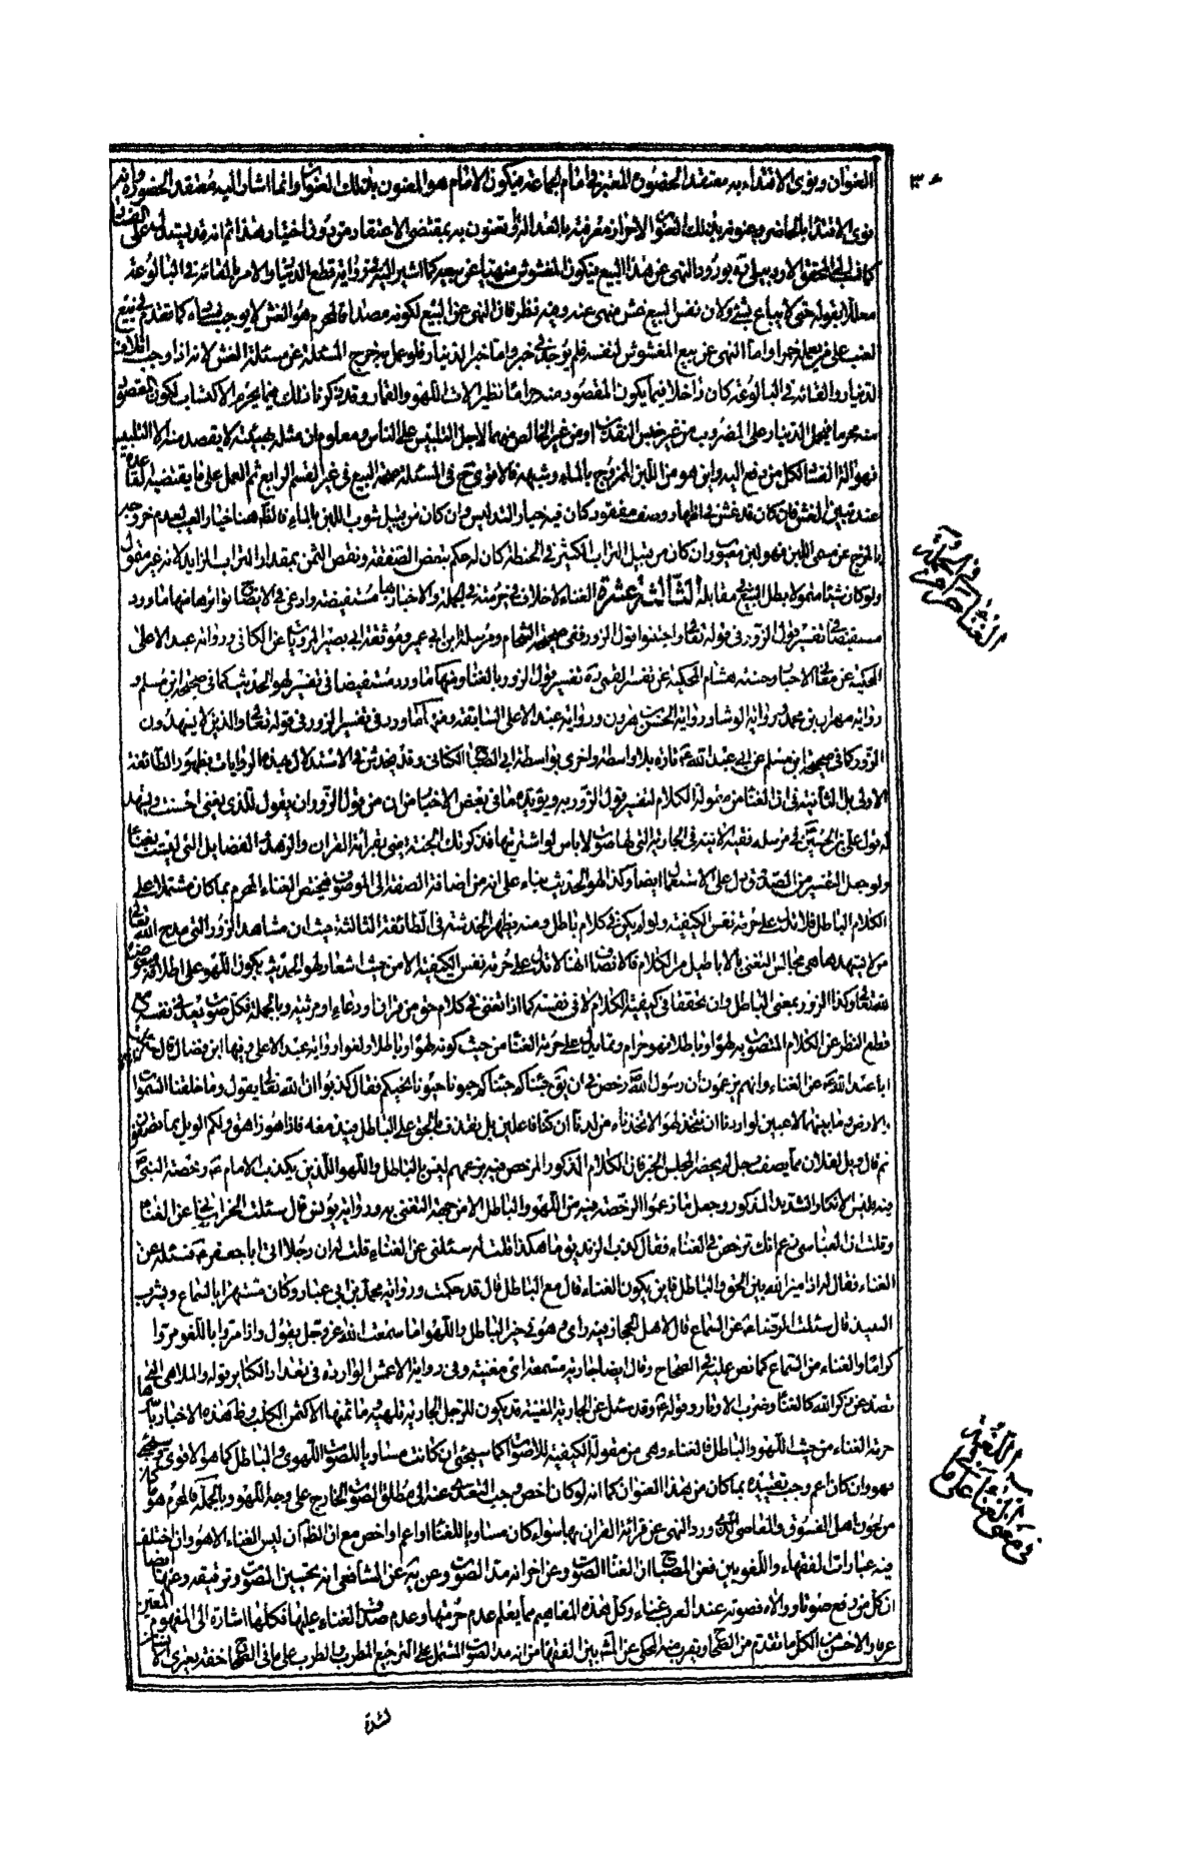 العنوان ونوى الاقتداء به معتقدا لحضور المعتبر في امام الجماعة فيكون الامام هو المعنون بذلك العنوان وانما اشار اليه معتقدا لحضوره
نوى الاقتداء بالحاضر وعنونه بذلك العنوان لاحراز معرفته بالعدالة او تعنون به بمقتضى الاعتقاد من دون اختيار هذا ثم انه قد يستدل على
كما في المحقق الاردبيلي ره بورود النهي عن هذا البيع فيكون المغشوش منهيا عن بيعه كما اشير اليه في رواية قطع الدينار والامر بالقائه في البالوعة
معللا بقوله حتى لا يباع بشيء ولان نفس البيع غش منهي عنه وفيه نظر فان النهي عن البيع لكونه مصداقا لمحرم هو الغش لا يوجب فساده كما تقدم في بيع
العنب على من يعمله خمرا واما النهي عن بيع المغشوش لنفسه فلم يوجد في خبر واما خبر الدينار فلو عمل به خرج المسئلة عن مسئلة الغش لانه اذا وجب اتلاف
الدينار والقائه في البالوعة كان داخلا فيما يكون المقصود منه حراما نظير الات اللهو والقمار وقد ذكرنا ذلك فيما يحرم الاكتساب به لكون المقصود
منه محرما فيحمل الدينار على المضروب من غير جنس النقدين او من غير الخالص منهما لاجل التلبيس على الناس ومعلوم ان مثله بهيئته لا يقصد منه الا التلبيس
فهو الة الفساد لكل من دفع اليه واين هو من اللبن الممزوج بالماء وشبهه فالاقوى ح في المسئلة صحة البيع في غير القسم الرابع ثم العمل على ما يقتضيه القاعدة
عند تبين الغش فان كان قد غش في اظهار وصف مفقود كان فيه خيار التدليس وان كان من قبيل شوب اللبن بالماء فالظ هنا خيار العيب لعدم خروجه
بالمزج عن مسمى اللبن فهو لبن معيوب وان كان من قبيل التراب الكثير في الحنطة كان له حكم تبعض الصفقة ونقص الثمن بمقدار التراب الزايد لانه غير متمول
ولو كان شيئا متمولا بطل البيع في مقابله الثالثة عشرة الغناء لا خلاف في حرمته في الجملة والاخبار بها مستفيضة وادعى في الايضاح تواترها منها ما ورد
مستفيضا في تفسير قول الزور في قوله تعالى واجتنبوا قول الزور ففي صحيحة الشحام ومرسلة ابن ابي عمير وموثقة ابي بصير المرويات عن الكافي ورواية عبد الاعلى
المحكية عن معاني الاخبار وحسنة هشام المحكية عن تفسير القمي ره تفسير قول الزور بالغناء ومنها ما ورد مستفيضا في تفسير لهو الحديث كما في صحيحة ابن مسلم و
رواية مهران بن محمد ورواية الوشاء ورواية الحسن بن هرون ورواية عبد الاعلى السابقة ومنها ما ورد في تفسير الزور في قوله تعالى والذين لا يشهدون
الزور كما في صحيحة ابن مسلم عن ابي عبد الله ع تارة بلا واسطة واخرى بواسطة ابي الصباح الكناني وقد يخدش في الاستدلال بهذه الروايات بظهور الطائفة
الاولى بل الثانية في ان الغناء من مقولة الكلام لتفسير قول الزور به ويؤيده ما في بعض الاخبار من ان من قول الزور ان يقول للذي يغني احسنت ويشهد
له قول علي بن الحسين ع في مرسلة الفقيه الاتية في الجارية التي لها صوت لا باس لو اشتريتها فذكرتك الجنة يعني بقرائة القران والزهد والفضايل التي ليست بغناء
ولو جعل التفسير من الصدوق دل على الاستعمال ايضا وكذا لهو الحديث بناء على انه من اضافة الصفة الى الموصوف فيختص الغناء المحرم بما كان مشتملا على
الكلام الباطل فلا تدل على حرمة نفس الكيفية ولو لم يكن في كلام باطل ومنه يظهر الخدشة في الطائفة الثالثة حيث ان مشاهد الزور التي مدح الله تعالى
من لا يشهدها هي مجالس التغني بالاباطيل من الكلام فالانصاف انها لا تدل على حرمة نفس الكيفية الا من حيث اشعار لهو الحديث بكون اللهو على اطلاقه مبغوضا
لله تعالى وكذا الزور بمعنى الباطل وان تحققا في كيفية الكلام لا في نفسه كما اذا تغنى في كلام حق من قران او دعاء او مرثية وبالجملة فكل صوت يعد في نفسه مع
قطع النظر عن الكلام المتصوت به لهوا وباطلا فهو حرام ومما يدل على حرمة الغناء من حيث كونه لهوا وباطلا ولغوا رواية عبد الاعلى وفيها ابن فضال قال سئلت
ابا عبد الله ع عن الغناء وانهم يزعمون ان رسول الله ص رخص في ان يق جئناكم جئناكم حيونا حيونا نحيكم فقال كذبوا ان الله تعالى يقول وما خلقنا السموات
والارض وما بينهما لاعبين لو اردنا ان نتخذ لهوا لاتخذناه من لدنا ان كنا فاعلين بل نقذف بالحق على الباطل فيدمغه فاذا هو زاهق ولكم الويل مما تصفون
ثم قال ويل لفلان مما يصف رجل لم يحضر المجلس الخبر فان الكلام المذكور المرخص فيه بزعمهم ليس بالباطل واللهو اللذين يكذب الامام ع رخصة النبي ص
فيه فليس الانكار الشديد المذكور وجعل ما زعموا الرخصة فيه من اللهو والباطل الا من جهة التغني به ورواية يونس قال سئلت الخراساني ع عن الغناء
وقلت ان العباسي زعم انك ترخص في الغناء فقال كذب الزنديق ما هكذا قلت له سئلني عن الغناء قلت له ان رجلا اتى ابا جعفر ع فسئله عن
الغناء فقال له اذا ميز الله بين الحق والباطل فاين يكون الغناء قال مع الباطل فقال قد حكمت ورواية محمد بن ابي عباد وكان مستهترا بالسماع ويشرب
النبيذ قال سئلت الرضا ع عن السماع قال لاهل الحجاز فيه راى وهو في حيز الباطل واللهو اما سمعت الله عز وجل يقول واذا مروا باللغو مروا
كراما والغناء من السماع كما نص عليه في الصحاح وقال ايضا جارية مسمعة اى مغنية وفي رواية الاعمش الواردة في تعداد الكبائر قوله والملاهي التي
تصد عن ذكر الله كالغناء وضرب الاوتار وقوله ع وقد سئل عن الجارية المغنية قد يكون للرجل الجارية تلهيه وما ثمنها الا كثمن الكلب وظ هذه الاخبار باسرها
حرمة الغناء من حيث اللهو والباطل فالغناء وهي من مقولة الكيفية للاصوات كما سيجئ ان كانت مساويا للصوت اللهوي والباطل كما هو الاقوى وسيجئ
فهو وان كان اعم وجب تقييده بما كان من هذا العنوان كما انه لو كان اخص وجب التعدي عنه الى مطلق الصوت الخارج على وجه اللهو وبالجملة فالمحرم هو ما كان
من لحون اهل الفسوق والمعاصي التي ورد النهي عن قرائة القران بها سواء كان مساويا للغناء او اعم او اخص مع ان الظ ان ليس الغناء الا هو وان اختلف
فيه عبارات الفقهاء واللغويين فعن المصباح ان الغناء الصوت وعن اخر انه مد الصوت وعن ية عن الشافعي انه تحسين الصوت وترقيقه وعنها ايضا
ان كل من رفع صوتا ووالاه فصوته عند العرب غناء وكل هذه المفاهيم مما يعلم عدم حرمتها وعدم صدق الغناء عليها فكلها اشارة الى المفهوم المعين
عرفا والاحسن من الكل ما تقدم من الصحاح ويقرب منه المحكي عن المشهور بين الفقهاء من انه مد الصوت المشتمل على الترجيع المطرب والطرب على ما في الصحاح خفة يعتري الانسان
لشدة
٣٠
الغناء حرام في الجملة
في معنى الغناء على ما